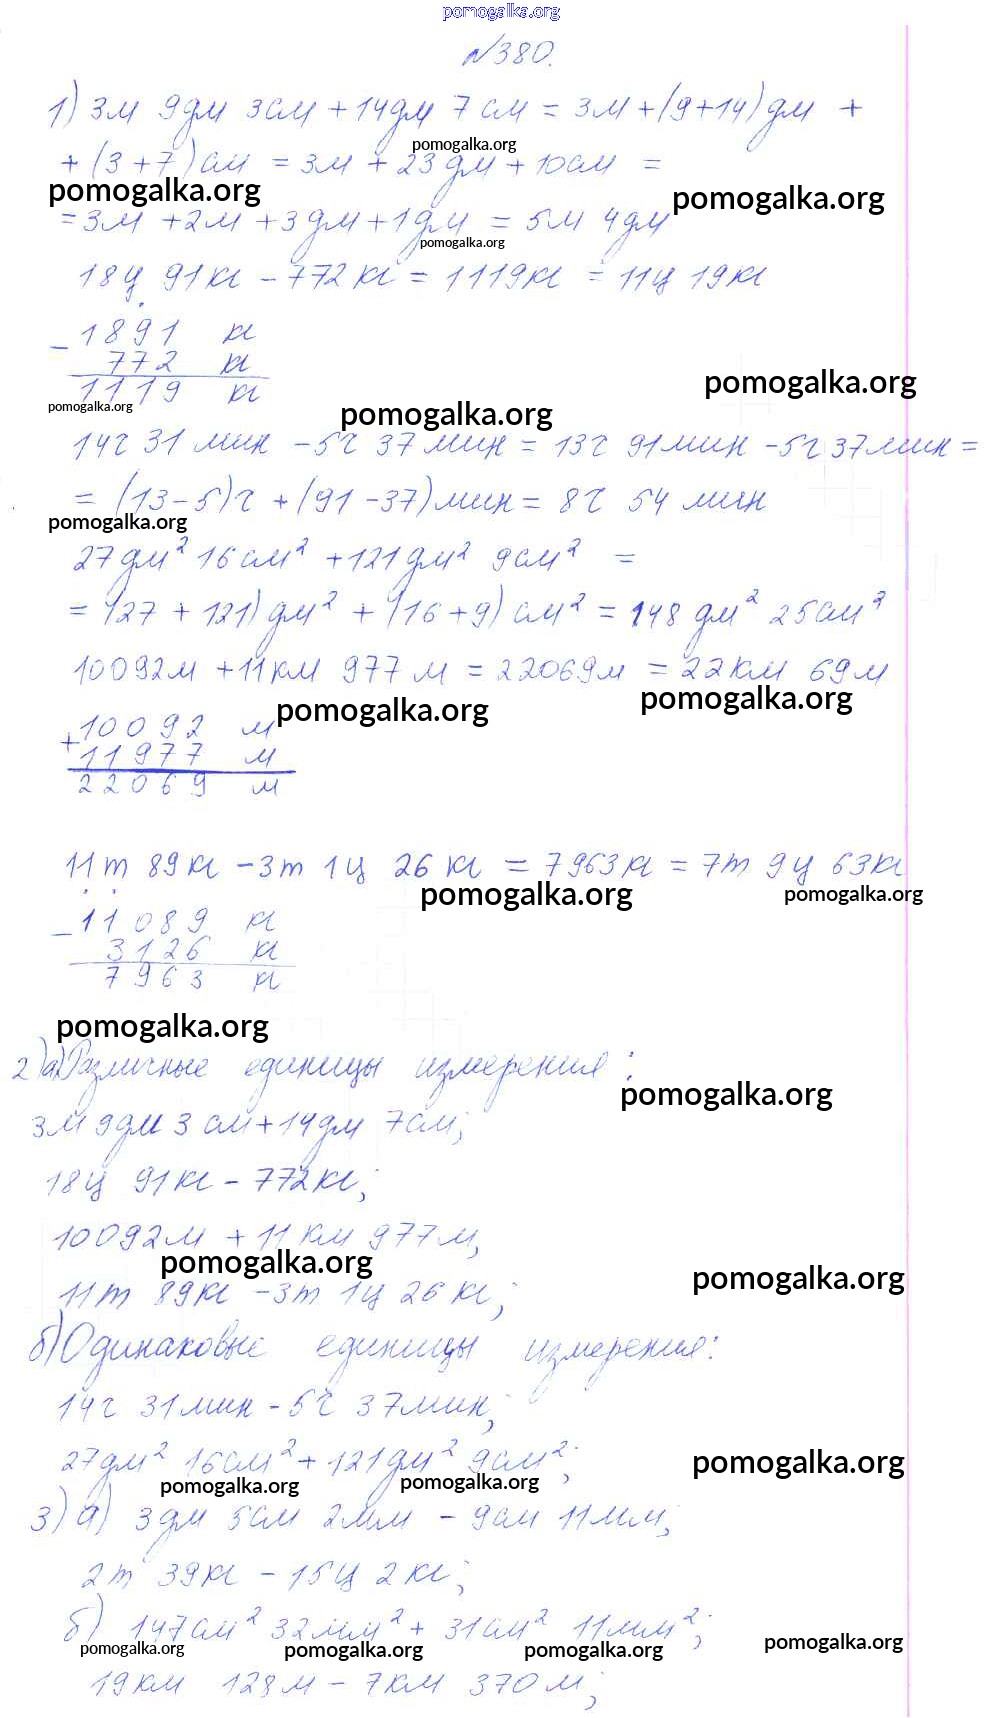 pomogalka.org
№380.
1) 3м 9дм 3см + 14дм 7см = 3м + (9+14) дм +
pomogalka.org
+ (3+7) см = 3м + 23дм + 10см =
pomogalka.org pomogalka.org
= 3м + 2м + 3дм + 1дм = 5м 4дм
pomogalka.org
18ц 91кг - 772кг = 1119кг = 11ц 19кг
- 1891 кг
772 кг
1119 кг
pomogalka.org
pomogalka.org pomogalka.org
14ч 31 мин - 5ч 37мин = 13ч 91мин - 5ч 37мин =
= (13-5)ч + (91-37)мин = 8ч 54 мин
pomogalka.org
27дм² 16см² + 121дм² 9см² =
= (27 + 121) дм² + (16+9) см² = 148 дм² 25см²
10092м + 11км 977 м = 22069м = 22км 69м
pomogalka.org pomogalka.org
+ 10092 м
11977 м
22069 м
11т 89кг - 3т 1ц 26 кг = 7963кг = 7т 9ц 63кг
pomogalka.org pomogalka.org
- 11089 кг
3126 кг
7963 кг
pomogalka.org
2) а) Различные единицы измерения:
pomogalka.org
3м 9дм 3 см + 14дм 7см;
18ц 91кг - 772кг;
10092м + 11км 977м;
pomogalka.org pomogalka.org
11т 89кг - 3т 1ц 26 кг;
б) Одинаковые единицы измерения:
14ч 31мин - 5ч 37мин;
27дм² 16см² + 121дм² 9см²;
pomogalka.org pomogalka.org pomogalka.org
3) а) 3дм 5см 2мм - 9см 11мм;
2т 39кг - 15ц 2кг;
б) 147см² 32мм² + 31см² 11мм²;
pomogalka.org pomogalka.org pomogalka.org pomogalka.org
19км 128м - 7км 370м;